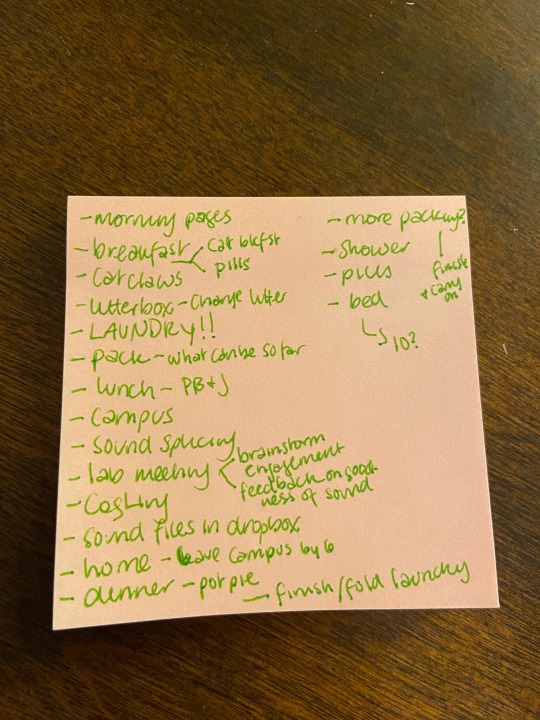 - morning pages
- breakfast
cat bkfst
pills
- cat claws
- litterbox - change litter
- LAUNDRY!!
- pack - what can be so far
- lunch - PB+J
- campus
- sound splicing
- lab meeting
brainstorm
engagement
feedback on good-
ness of sound
- sound files in dropbox
- home - leave campus by 6
- dinner - pot pie
- finish/fold laundry
- more packing?
finish
+ carry
on
- shower
- pills
- bed
10?